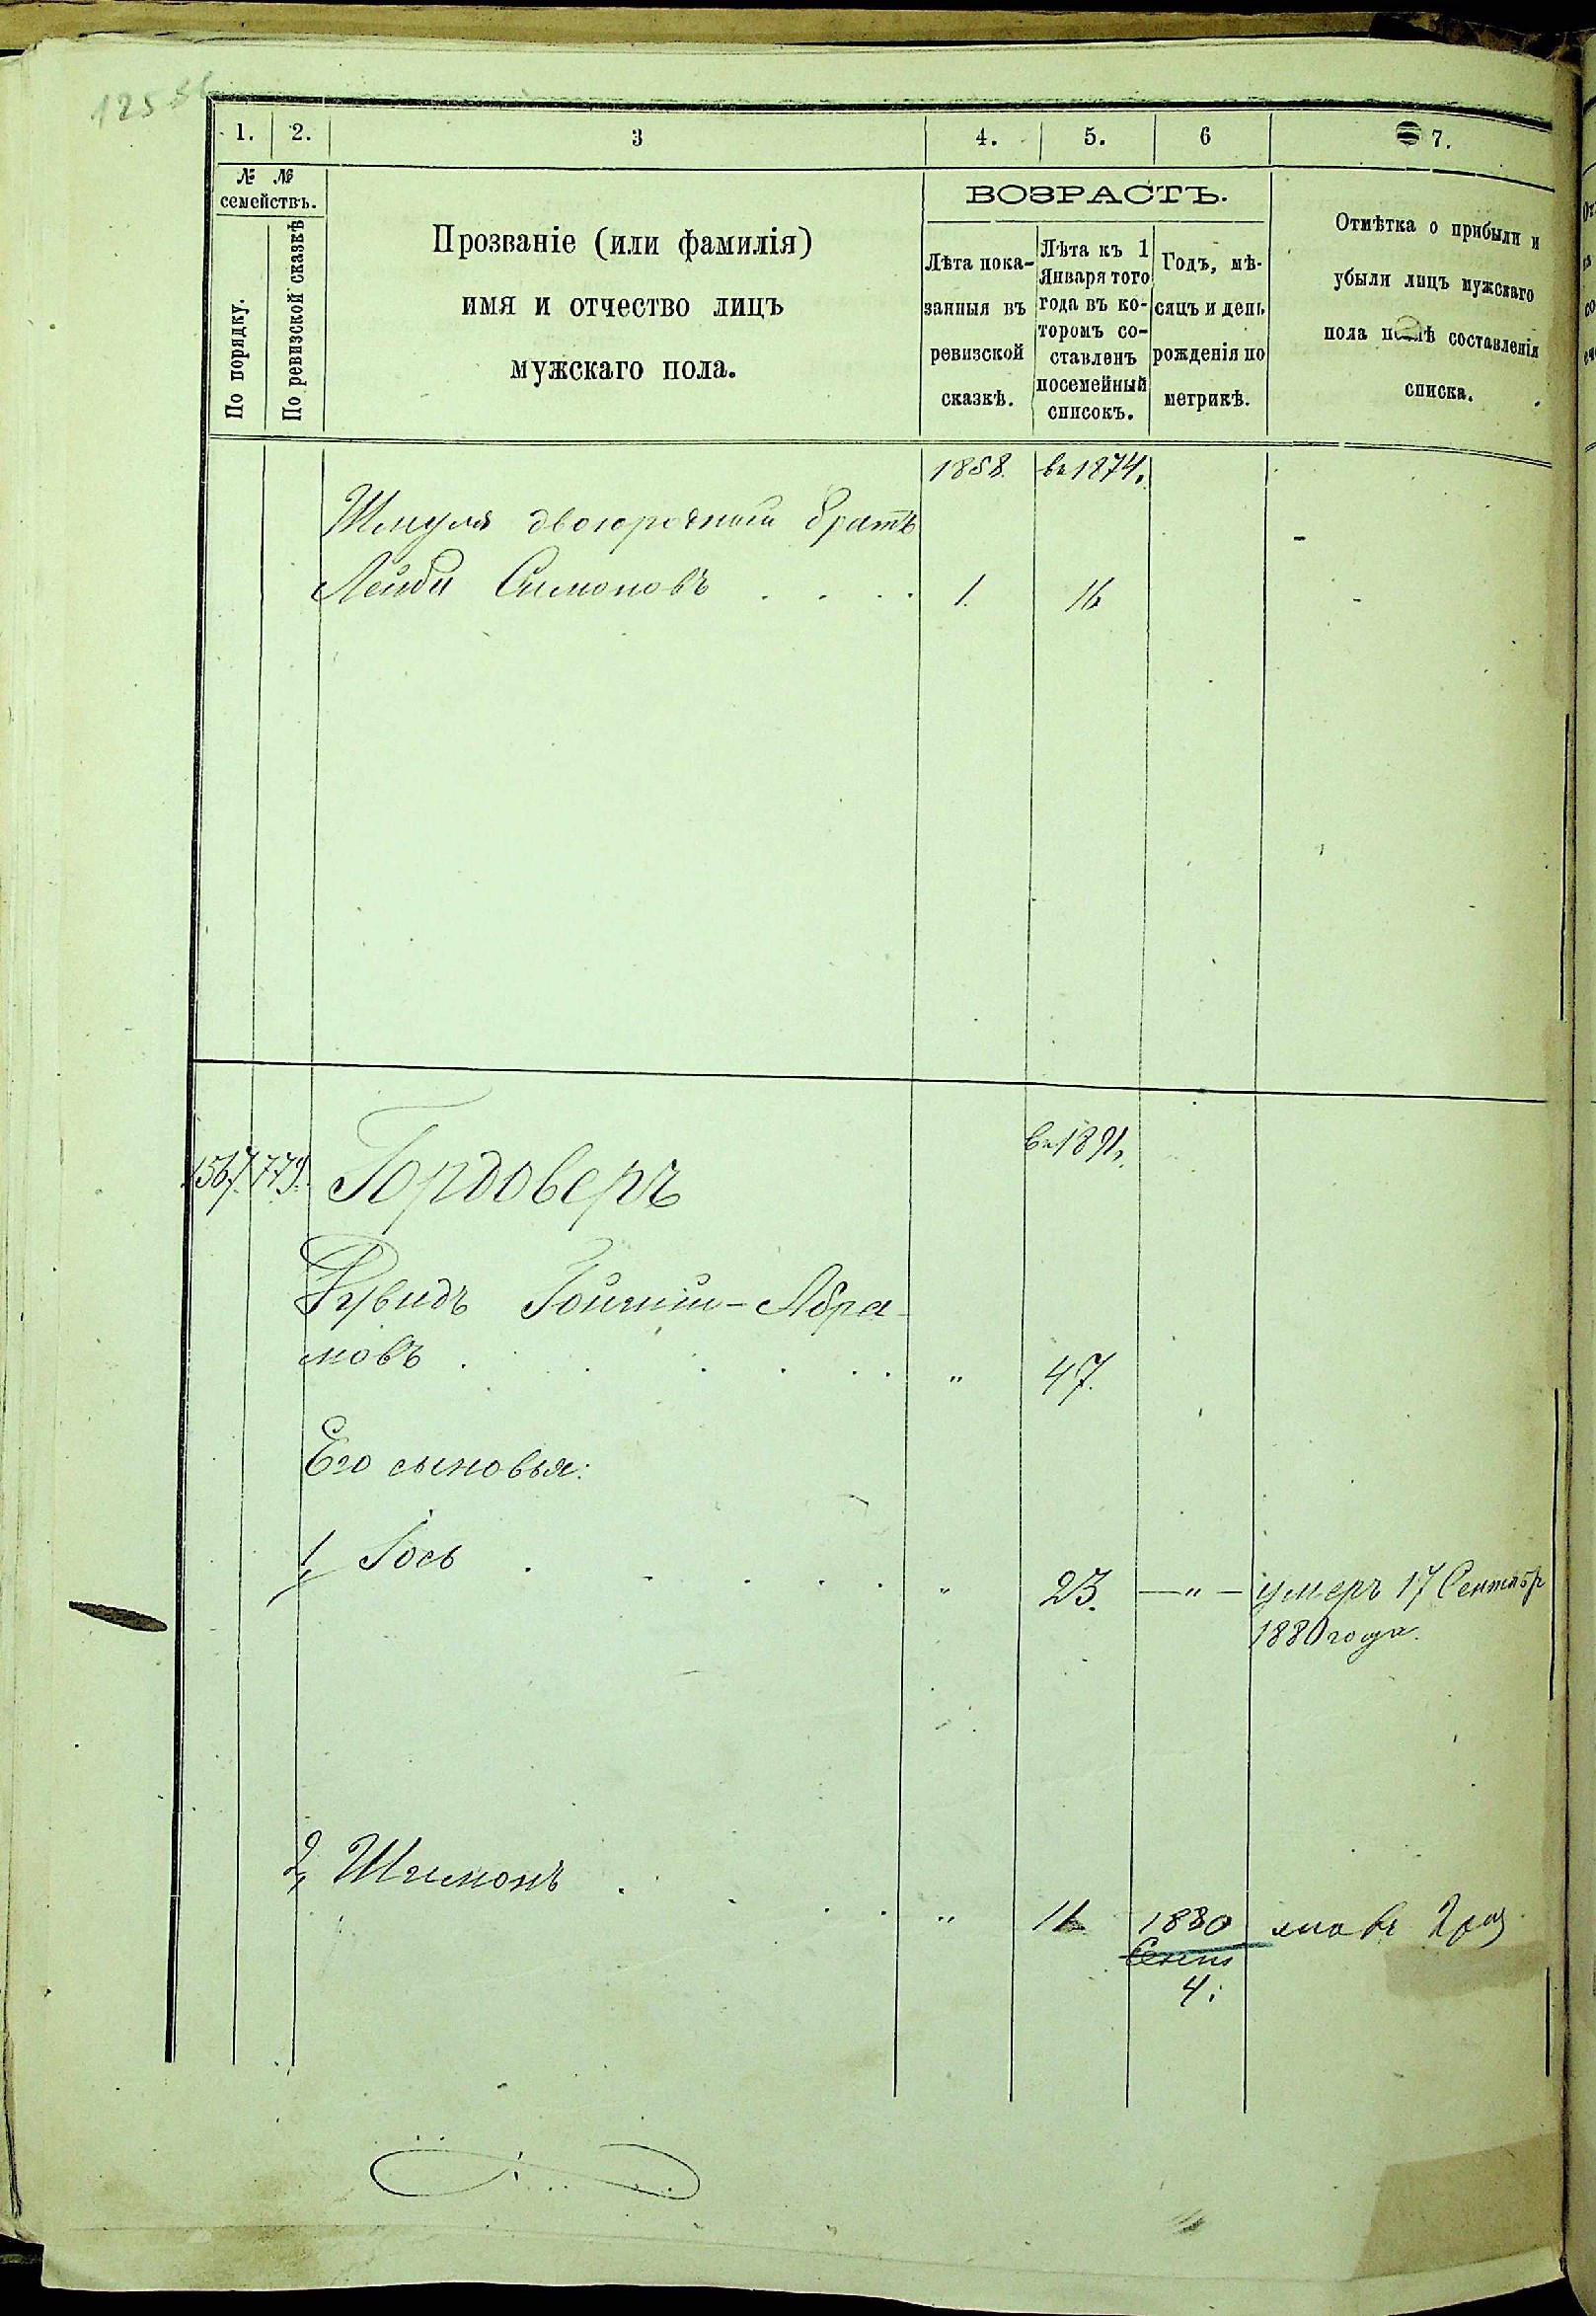 1. 2. 3 4. 5. 6 7.
№ № семействъ.
По порядку.
По ревизской сказкѣ
Прозваніе (или фамилія)
имя и отчество лицъ
мужскаго пола.
ВОЗРАСТЪ.
Лѣта пока-
занныя въ
ревизской
сказкѣ.
Лѣта къ 1
Января того
года въ ко-
торомъ со-
ставленъ
посемейный
списокъ.
Годъ, мѣ-
сяцъ и день
рожденія по
метрикѣ.
Отмѣтка о прибыли и
убыли лицъ мужскаго
пола послѣ составленія
списка.
1858. въ 1874.
Шмуля двоюродный братъ
Лейби Симоновъ . . . . 1. 16
въ 1891.
1567. 779. Гордоверъ
Рувидъ Абра-
мовъ . . . . . . „ 47.
Его сыновья:
1, Іось . . . . . . „ 23. — „ — умеръ 17 Сентябр
1880 года.
2, Шимонъ . . . . „ 16 1880
4.